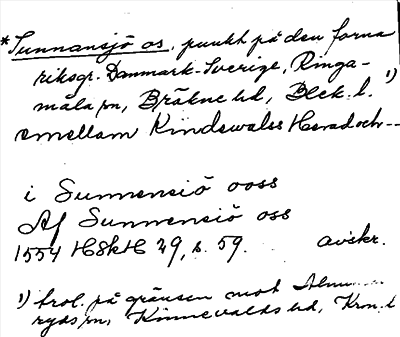 *Sunnansjö os, punkt på den forna
riksgr. Danmark-Sverige, Ringa-
måla sn, Bräkne hd, Blek. l. 1)
emellam Kindewalss Herad och --
i Sunnensiö ooss
Af Sunnensiö oss
1554 HSkH 29, s. 59. avskr.
1) trol. på gränsen mot Almun
ryds sn, Kinnevalds hd, Kron. l